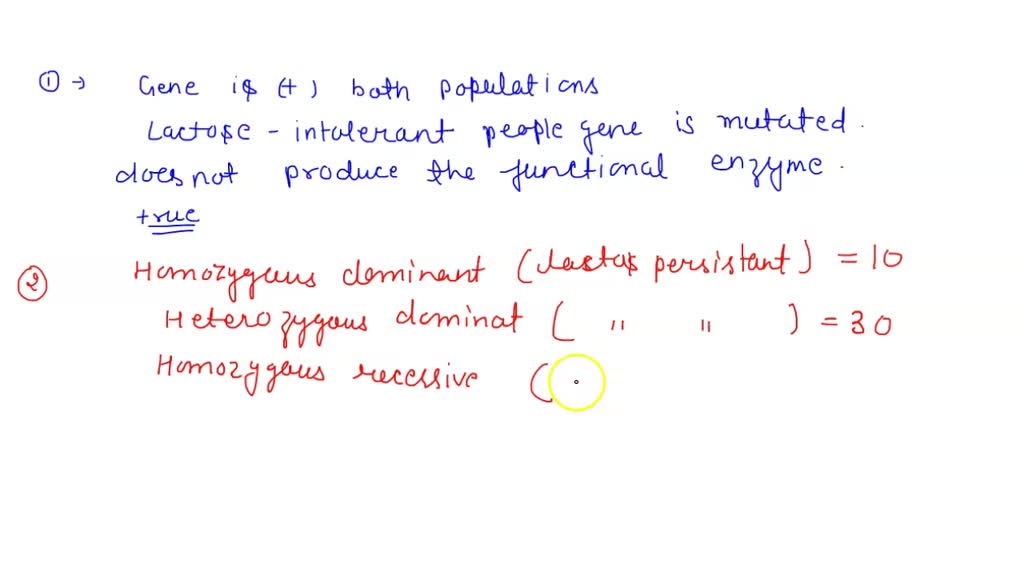 ① → Gene is (+) both populations
Lactose - intolerant people gene is mutated.
does not produce the functional enzyme.
true
② Homozygous dominant (lactas persistant) = 10
Heterozygous dominat ( " " ) = 30
Homozygous recessive (